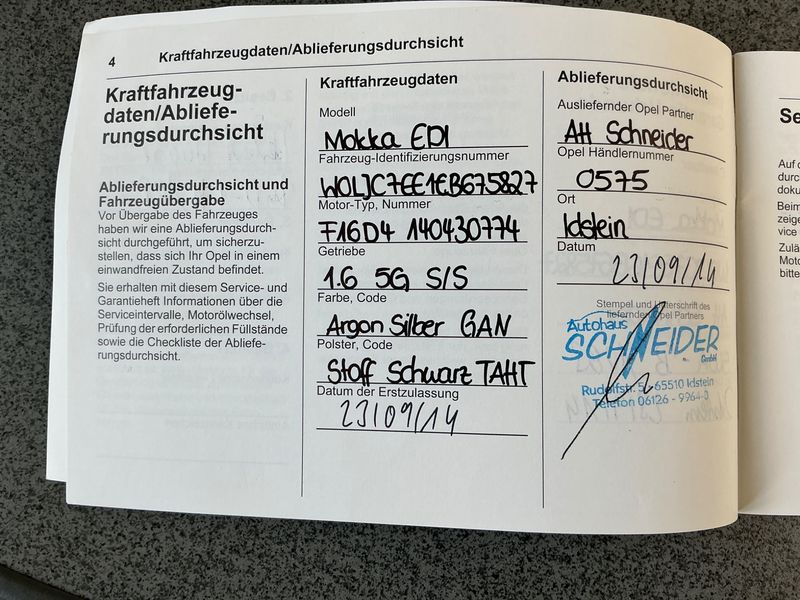 4
Kraftfahrzeugdaten/Ablieferungsdurchsicht
Kraftfahrzeug-
daten/Abliefe-
rungsdurchsicht
Ablieferungsdurchsicht und
Fahrzeugübergabe
Vor Übergabe des Fahrzeuges
haben wir eine Ablieferungsdurch-
sicht durchgeführt, um sicherzu-
stellen, dass sich Ihr Opel in einem
einwandfreien Zustand befindet.
Sie erhalten mit diesem Service- und
Garantieheft Informationen über die
Serviceintervalle, Motorölwechsel,
Prüfung der erforderlichen Füllstände
sowie die Checkliste der Abliefe-
rungsdurchsicht.
Kraftfahrzeugdaten
Modell
Mokka EDI
Fahrzeug-Identifizierungsnummer
W0LJC7EE1EB675827
Motor-Typ, Nummer
F16D4 140430774
Getriebe
1.6 5G S/S
Farbe, Code
Argon Silber GAN
Polster, Code
Stoff Schwarz TAHT
Datum der Erstzulassung
23/09/14
Ablieferungsdurchsicht
Ausliefernder Opel Partner
AH Schneider
Opel Händlernummer
0575
Ort
Idstein
Datum
23/09/14
Stempel und Unterschrift des
liefernden Opel Partners
Autohaus
SCHNEIDER
GmbH
65510 Idstein
Telefon 06126 - 9964-0
Se
Auf d
durc
doku
Beim
zeige
vice
Zulä
Moto
bitte